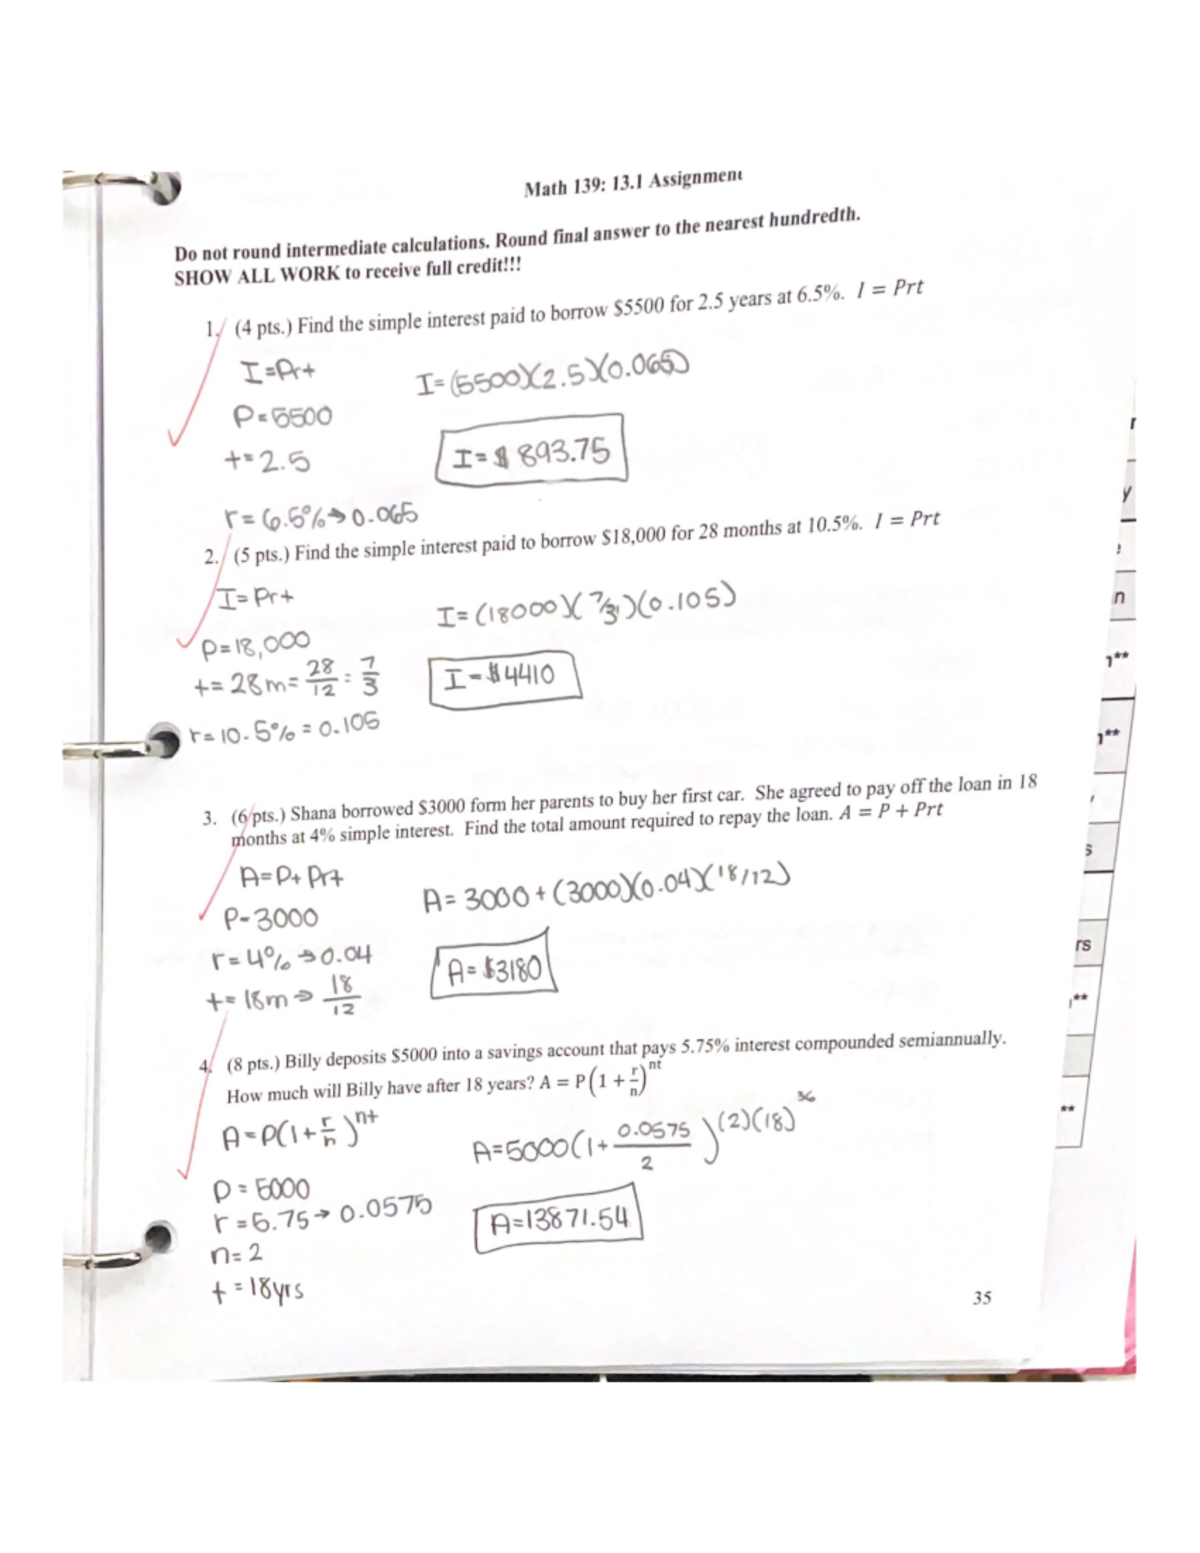 Math 139: 13.1 Assignment
Do not round intermediate calculations. Round final answer to the nearest hundredth.
SHOW ALL WORK to receive full credit!!!
1. (4 pts.) Find the simple interest paid to borrow $5500 for 2.5 years at 6.5%. I = Prt
I=Prt
I=(5500)(2.5)(0.065)
P=5500
t=2.5
I=$ 893.75
r=6.5%→0.065
2. (5 pts.) Find the simple interest paid to borrow $18,000 for 28 months at 10.5%. I = Prt
I=Prt
I=(18000)(7/3)(0.105)
P=18,000
t=28m=28/12=7/3
I=$4410
r=10.5%=0.105
3. (6 pts.) Shana borrowed $3000 form her parents to buy her first car. She agreed to pay off the loan in 18
months at 4% simple interest. Find the total amount required to repay the loan. A = P + Prt
A=P+Prt
A=3000+(3000)(0.04)(18/12)
P=3000
r=4%→0.04
A=$3180
t=18m→18/12
4. (8 pts.) Billy deposits $5000 into a savings account that pays 5.75% interest compounded semiannually.
How much will Billy have after 18 years? A = P(1 + r/n)^nt
A=P(1+r/n)^nt
A=5000(1+0.0575/2)^(2)(18) 36
P=5000
r=5.75→0.0575
A=13871.54
n=2
t=18yrs
35